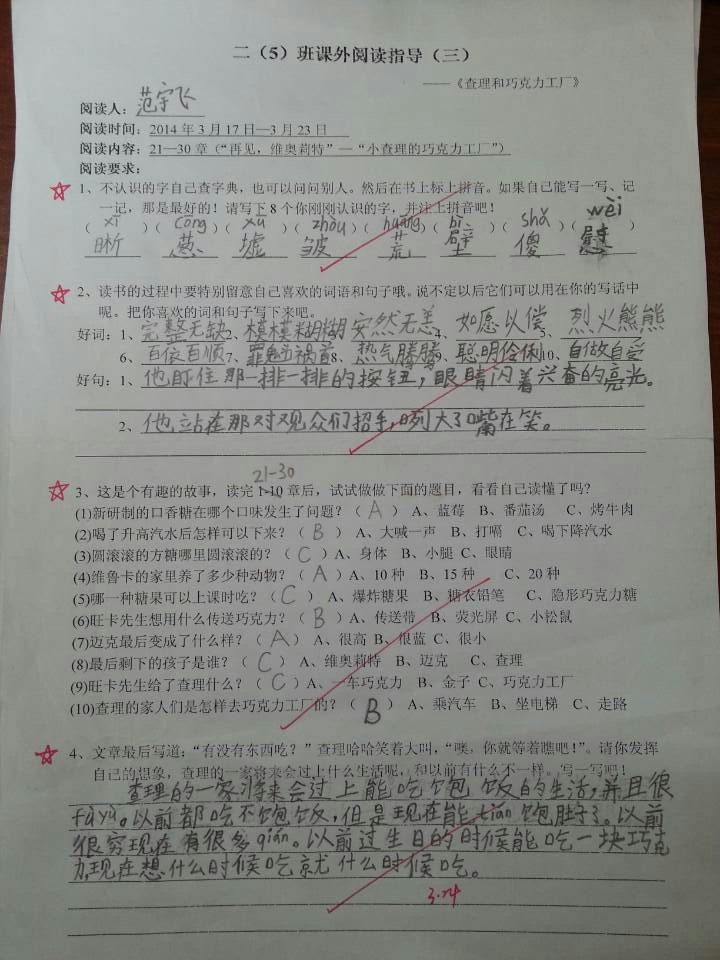 二（5）班课外阅读指导（三）
——《查理和巧克力工厂》
阅读人：范宇飞
阅读时间：2014年3月17日—3月23日
阅读内容：21—30章（“再见，维奥莉特”—“小查理的巧克力工厂”）
阅读要求：
1、不认识的字自己查字典，也可以问问别人。然后在书上标上拼音。如果自己能写一写、记
一记，那是最好的！请写下8个你刚刚认识的字，并注上拼音吧！
（xī）（cōng）（xū）（zhòu）（huāng）（bì）（shǎ）（wèi）
晰 葱 墟 皱 荒 壁 傻 慰
2、读书的过程中要特别留意自己喜欢的词语和句子哦。说不定以后它们可以用在你的写话中
呢。把你喜欢的词和句子写下来吧。
好词：1、完整无缺2、模模糊糊 安然无恙4、如愿以偿5、烈火熊熊
6、百依百顺7、罪魁祸首8、热气腾腾9、聪明伶俐10、自做自受
好句：1、他盯住那一排一排的按钮，眼睛闪着兴奋的亮光。
2、他站在那对观众们招手，咧大了嘴在笑。
21-30
3、这是个有趣的故事，读完1-10章后，试试做做下面的题目，看看自己读懂了吗？
(1)新研制的口香糖在哪个口味发生了问题？（A）A、蓝莓 B、番茄汤 C、烤牛肉
(2)喝了升高汽水后怎样可以下来？（B）A、大喊一声 B、打嗝 C、喝下降汽水
(3)圆滚滚的方糖哪里圆滚滚的？（C）A、身体 B、小腿 C、眼睛
(4)维鲁卡的家里养了多少种动物？（A）A、10种 B、15种 C、20种
(5)哪一种糖果可以上课时吃？（C）A、爆炸糖果 B、糖衣铅笔 C、隐形巧克力糖
(6)旺卡先生想用什么传送巧克力？（B）A、传送带 B、荧光屏 C、小松鼠
(7)迈克最后变成了什么样？（A）A、很高 B、很蓝 C、很小
(8)最后剩下的孩子是谁？（C）A、维奥莉特 B、迈克 C、查理
(9)旺卡先生给了查理什么？（C）A、一车巧克力 B、金子 C、巧克力工厂
(10)查理的家人们是怎样去巧克力工厂的？（B）A、乘汽车 B、坐电梯 C、走路
4、文章最后写道：“有没有东西吃？”查理哈哈笑着大叫，“噢，你就等着瞧吧！”。请你发挥
自己的想象，查理的一家将来会过上什么生活呢，和以前有什么不一样。写一写吧！
查理的一家将来会过上能吃饱饭的生活，并且很
fùyù。以前都吃不饱饭，但是现在能tián饱肚子了。以前
很穷现在有很多qián。以前过生日的时候能吃一块巧克
力现在想什么时候吃就什么时候吃。
3.24